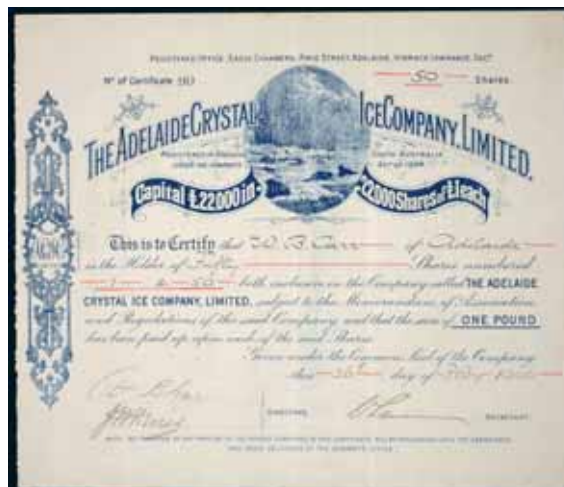 REGISTERED OFFICE, EAGLE CHAMBERS, PIRIE STREET, ADELAIDE, HORACE LAWRANCE, SECY
No of Certificate 50 Shares.
THE ADELAIDE CRYSTAL ICE COMPANY, LIMITED.
SOUTH AUSTRALIA
Capital £22,000 in 22,000 Shares of £1 each
This is to Certify that W. B. Carr of Adelaide
is the Holder of Fifty Shares numbered
1 to 50 both inclusive in the Company called THE ADELAIDE
CRYSTAL ICE COMPANY, LIMITED, subject to the Memorandum of Association
and Regulations of the said Company and that the sum of ONE POUND
has been paid up upon each of the said Shares.
Given under the Common Seal of the Company
this day of
DIRECTORS. SECRETARY.